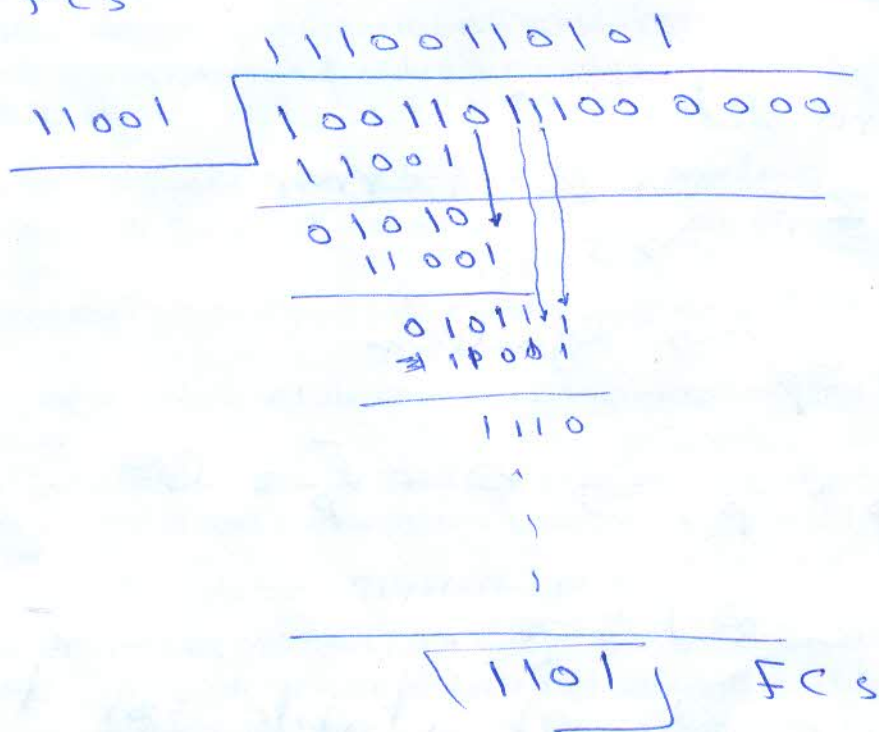 FCS
11100110101
11001
10011011100 0000
11001
01010
11001
010111 1
11001
1110
1101 FCS